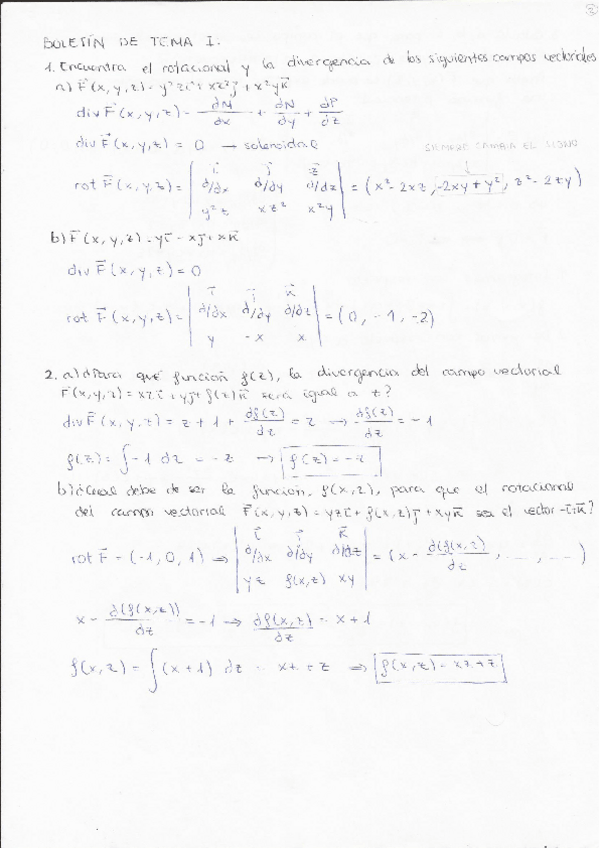 2
BOLETÍN DE TEMA I.
1. Encuentra el rotacional y la divergencia de los siguientes campos vectoriales
a) F⃗(x, y, z) = y²z i⃗ + xz² j⃗ + x²y k⃗
div F⃗(x, y, z) = ∂M/∂x + ∂N/∂y + ∂P/∂z
div F⃗(x, y, z) = 0 → solenoidal
SIEMPRE CAMBIA EL SIGNO
rot F⃗(x, y, z) = | i⃗ j⃗ z⃗ |
| ∂/∂x ∂/∂y ∂/∂z | = (x² - 2xz, -2xy + y², z² - 2zy)
| y²z xz² x²y |
b) F⃗(x, y, z) = y i⃗ - x j⃗ + x k⃗
div F⃗(x, y, z) = 0
rot F⃗(x, y, z) = | i⃗ j⃗ k⃗ |
| ∂/∂x ∂/∂y ∂/∂z | = (0, -1, -2)
| y -x x |
2. a) ¿Para qué función f(z), la divergencia del campo vectorial
F⃗(x, y, z) = xz i⃗ + y j⃗ + f(z) k⃗ será igual a z?
div F⃗(x, y, z) = z + 1 + ∂f(z)/∂z = z → ∂f(z)/∂z = -1
f(z) = ∫ -1 dz = -z → f(z) = -z
b) ¿Cuál debe de ser la función, f(x, z), para que el rotacional
del campo vectorial F⃗(x, y, z) = yz i⃗ + f(x, z) j⃗ + xy k⃗ sea el vector -i⃗ + k⃗?
rot F⃗ = (-1, 0, 1) ⇒ | i⃗ j⃗ k⃗ |
| ∂/∂x ∂/∂y ∂/∂z | = (x - ∂(f(x, z))/∂z, ..., ...)
| yz f(x, z) xy |
x - ∂(f(x, z))/∂z = -1 → ∂f(x, z)/∂z = x + 1
f(x, z) = ∫ (x + 1) dz = xz + z ⇒ f(x, z) = xz + z